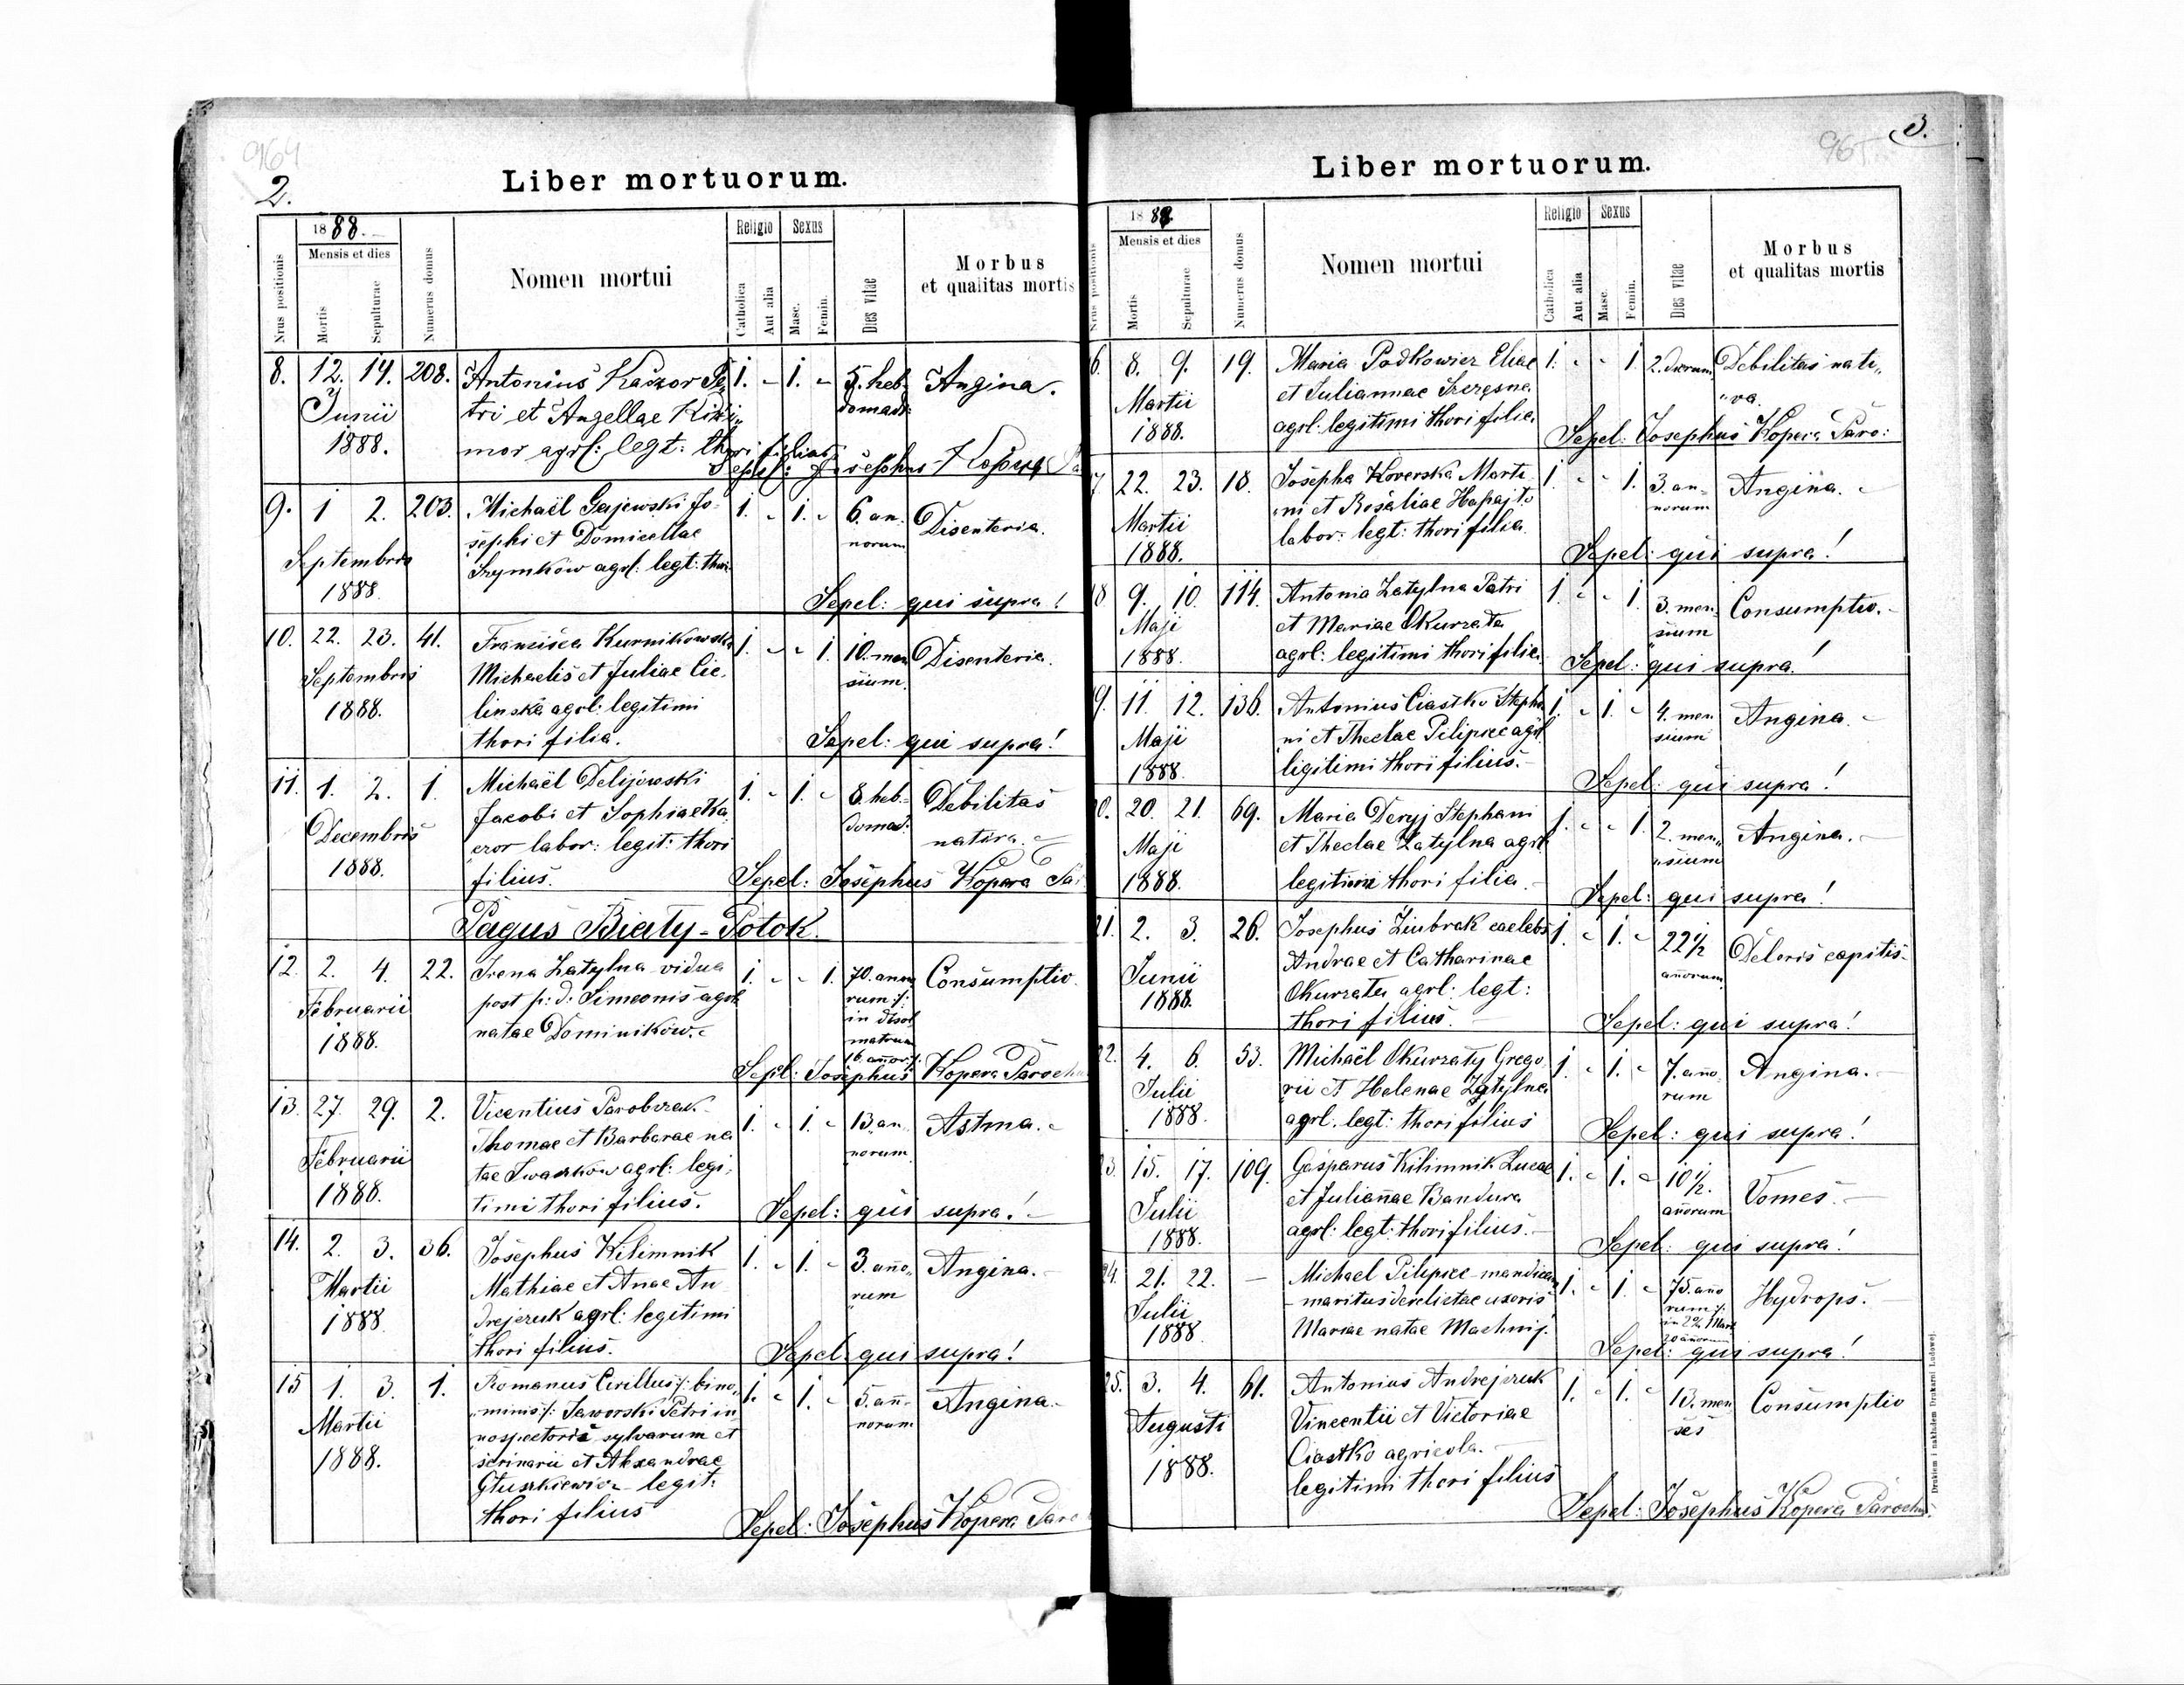 964
2.
Liber mortuorum.
Nrus positionis
1888.
Mensis et dies
Mortis
Sepulturae
Numerus domus
Nomen mortui
Religio
Catholica
Aut alia
Sexus
Masc.
Femin.
Dies vitae
Morbus
et qualitas mortis
8. 12. 14. 208. Antonius Kaczor Pe„ 1. - 1. - 5. heb. Angina.
Junii tri et Angellae Kiki„ domad:
1888. mor agrl: legt: thori filius
Sepel: Josephus Kopera Pa
9. 1 2. 203. Michaël Gajewski Jo- 1. - 1. - 6. an. Disenteria.
Septembris sephi et Domicellae norum
1888. Szymków agrl: legt: thori
Sepel: qui supra!
10. 22. 23. 41. Francisca Kurnikowska 1. - - 1. 10. men Disenteria.
Septembris Michaelis et Juliae Cie„ sium.
1888. linska agrl: legitimi
thori filia. Sepel: qui supra!
11. 1. 2. 1. Michaël Delijowski 1. - 1. - 8. heb. Debilitas
Decembris Jacobi et Sophiae Ka„ domad. nativa.
1888. czor labor: legit: thori
filius. Sepel: Josephus Kopera Pa
Pagus Biały-Potok.
12. 2. 4. 22. Irena Zatylna vidua 1. - - 1. 70. anno Consumptio
Februarii post p: d: Simeonis agrl rum /:
1888. natae Dominików. in
16. annor:/:
Sepl: Josephus Kopera Paroch
13. 27. 29. 2. Vicentius Parobczak 1. - 1. - 13. an Astma.
Februarii Thomae et Barbarae na norum
1888. tae Iwaszków agrl: legi„
timi thori filius. Sepel: qui supra!
14. 2. 3. 36. Josephus Kilimnik 1. - 1. - 3. año„ Angina.
Martii Mathiae et Anae An rum
1888 drejczuk agrl: legitimi
thori filius. Sepel: qui supra!
15 1. 3. 1. Romanus Cirillus /: bino„ 1. - 1. - 5. añ- Angina.
Martii minis:/ Jaworski Petri in norum
1888. nospectoris sylvarum et
scrinarii et Alexandrae
Głuszkiewicz legit:
thori filius Sepel: Josephus Kopera Paro
965
3.
Liber mortuorum.
Nrus positionis
1888.
Mensis et dies
Mortis
Sepulturae
Numerus domus
Nomen mortui
Religio
Catholica
Aut alia
Sexus
Masc.
Femin.
Dies vitae
Morbus
et qualitas mortis
6. 8. 9. 19. Maria Podkowicz Eliae 1. - - 1. 2. dierum Debilitas nati„
Martii et Juliannae Szczęsna „va.
1888. agrl: legitimi thori filia.
Sepel: Josephus Kopera Paro:
7 22. 23. 18. Josepha Koverska Marti 1. - - 1. 3. an- Angina.
Martii „ni et Rosaliae Hapajto norum
1888. labor: legt: thori filia.
Sepel: qui supra!
18 9. 10. 114. Antonia Zatylna Patri 1. - - 1. 3. men Consumptio.
Maji et Mariae Okurzata sium
1888. agrl: legitimi thori filia.
Sepel: qui supra!
9. 11. 12. 136. Antonius Ciastko Stepha 1. - 1. - 4. men Angina.
Maji ni et Theclae Pilipiec agrl sium
1888. ligitimi thori filius.
Sepel: qui supra!
0. 20. 21. 69. Maria Deryj Stephani 1. - - 1. 2. men„ Angina.
Maji et Theclae Zatylna agrl „sium
1888. legitimi thori filia.
Sepel: qui supra!
21. 2. 3. 26. Josephus Zinbrak caelebs 1. - 1. - 22½ Deloris capitis
Junii Andrae et Catharinae añorum
1888. Okurzata agrl: legt:
thori filius. Sepel: qui supra!
22. 4. 6. 53. Michaël Okurzaty Grego 1. - 1. - 7. año Angina.
Julii rii et Helenae Zatylna rum
1888. agrl: legt: thori filius
Sepel: qui supra!
23. 15. 17. 109. Gasparus Kilimnik Lucae 1. - 1. - 10½. Vomes.
Julii et Juliañae Bandura añorum
1888. agrl: legt: thori filius.
Sepel: qui supra!
24. 21. 22. — Michael Pilipiec mandicans 1. - 1. - 75. año Hydrops.
Julii maritus derelictae uxoris rum /:
1888 Mariae natae Machnij. in 2% Mark
20 añorum
Sepel: qui supra!
25. 3. 4. 61. Antonius Andrejczuk 1. - 1. - 13. men Consumptio
Augusti Vincentii et Victoriae ses
1888. Ciastko agricola.
legitimi thori filius
Sepel: Josephus Kopera Parochus.
Drukiem i nakładem Drukarni Ludowej.